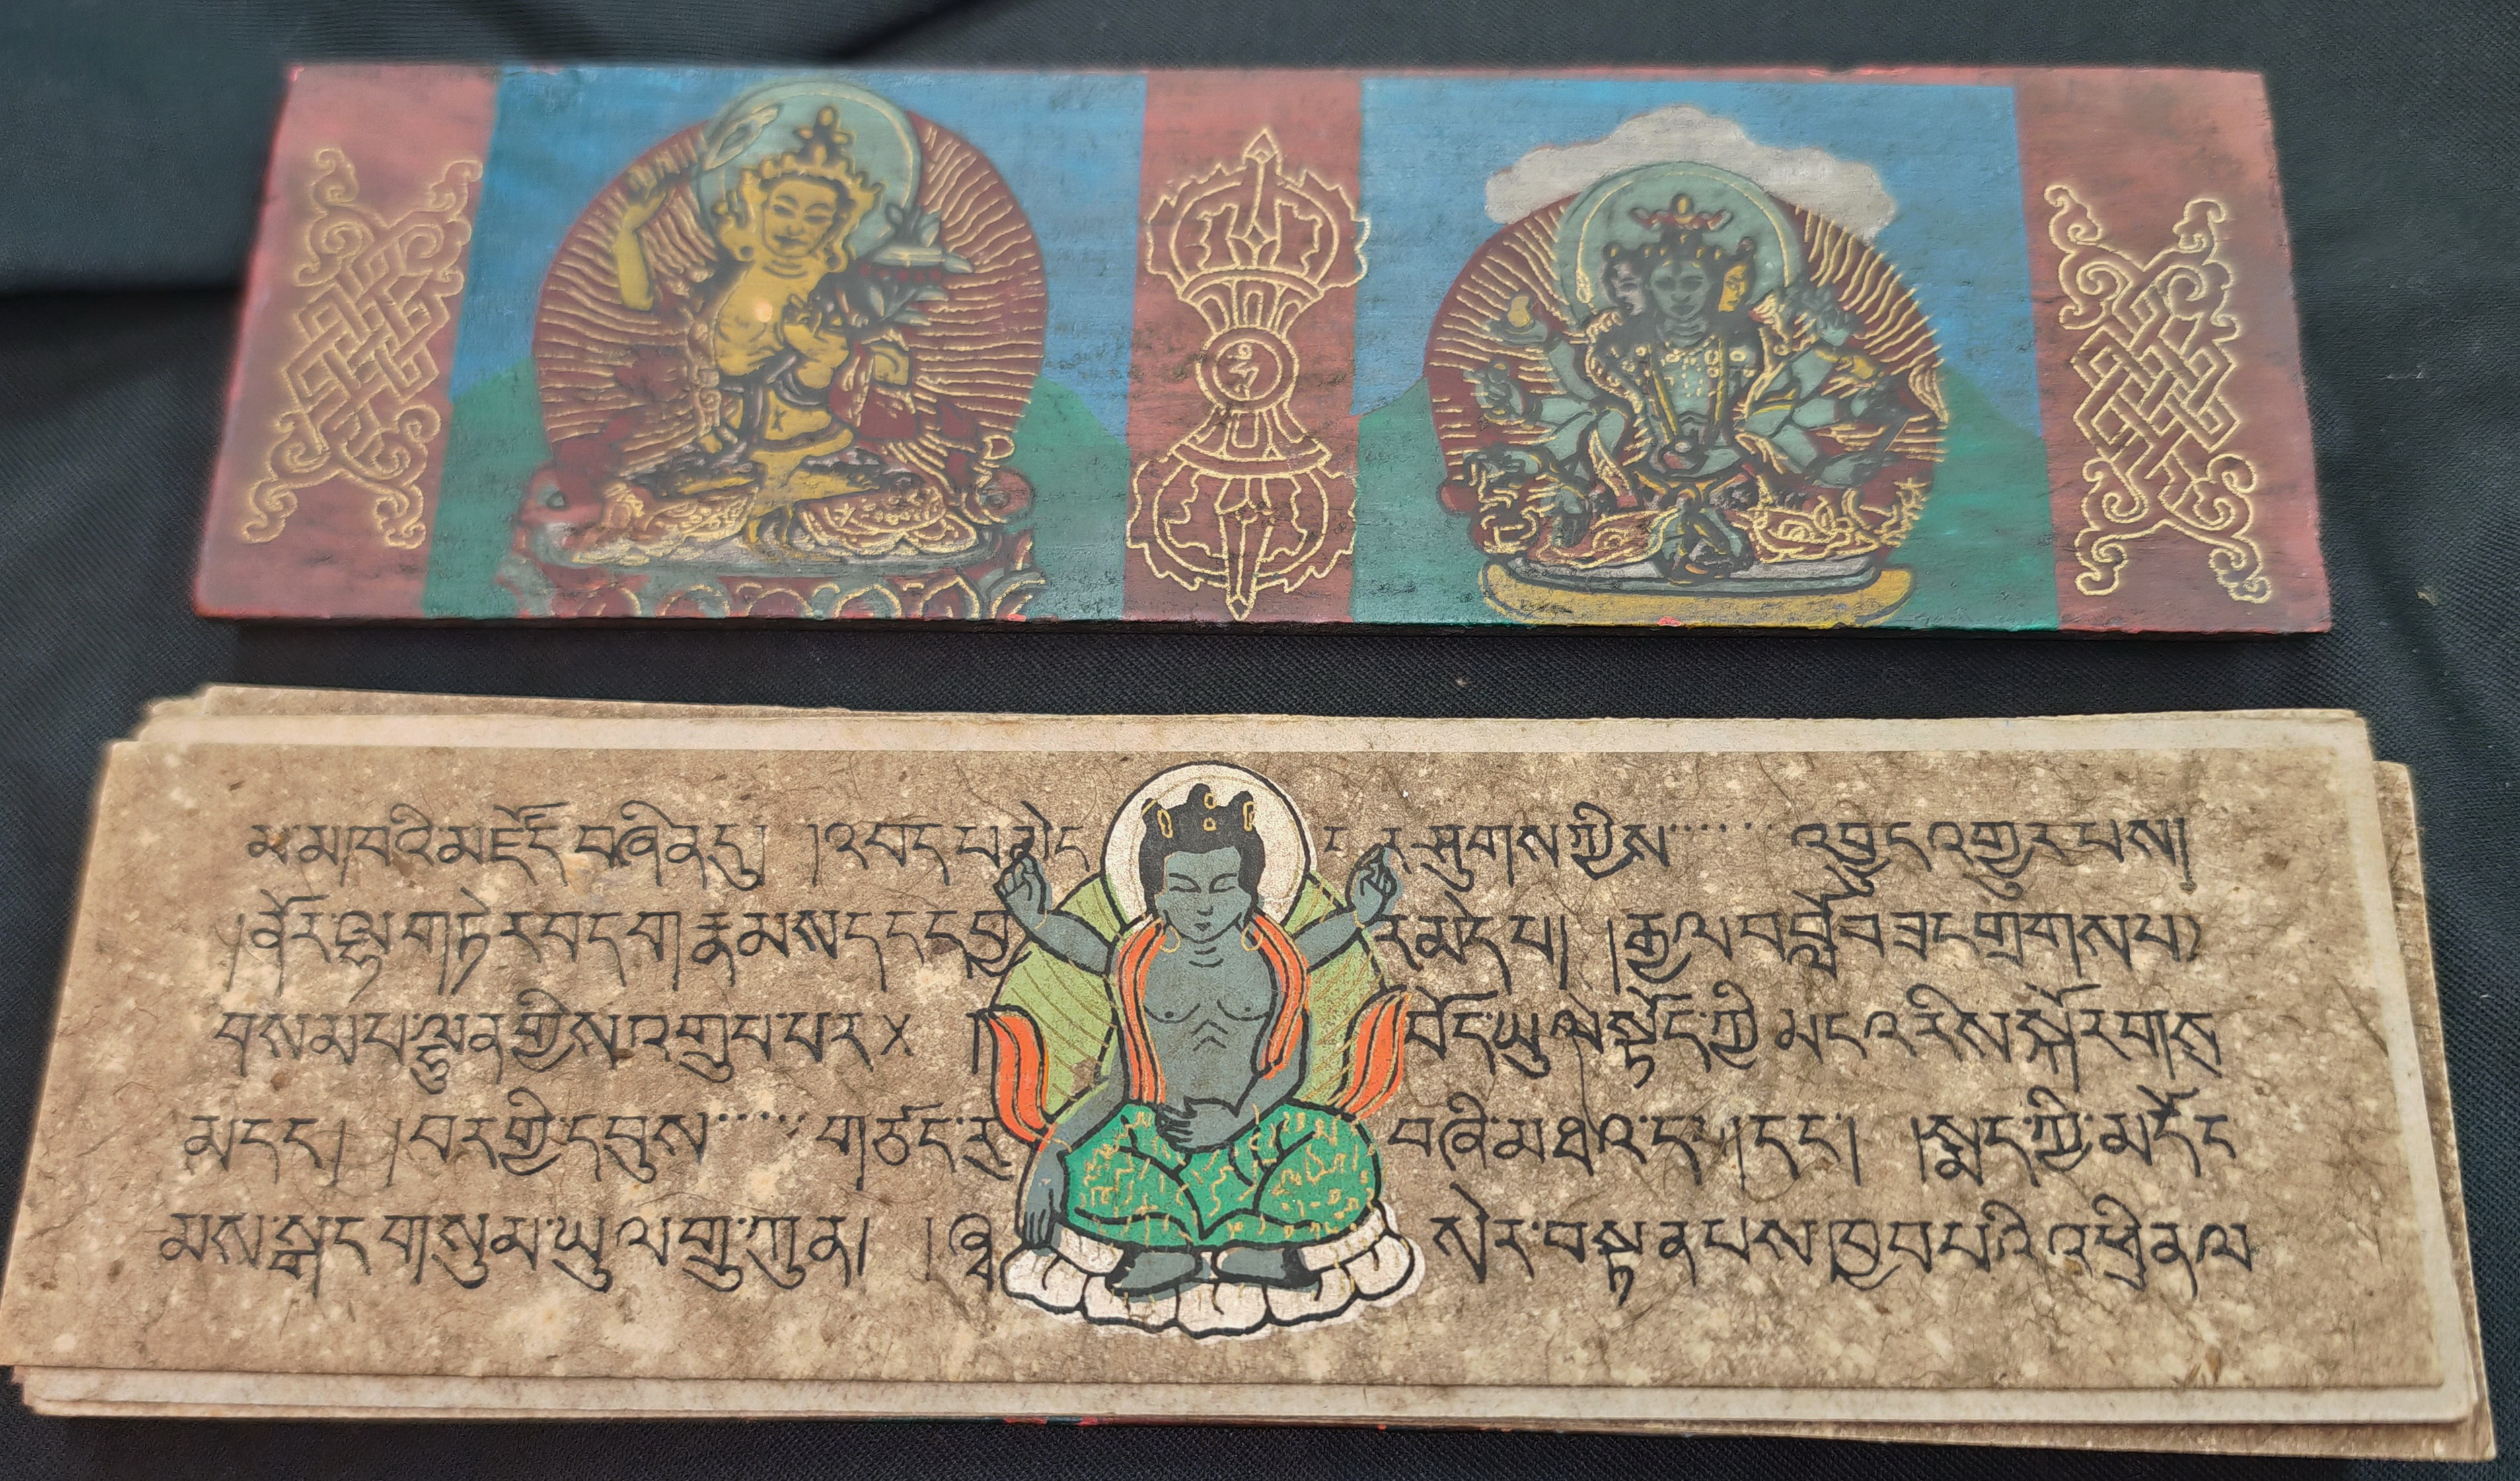 མ་མཁའི་མཛོད་བཞིན་དུ། །འབད་པ་མེད་ ར་ཤུགས་ཀྱིས་་་་་་འབྱུང་འགྱུར་པས།
།ནོར་ལྷ་གཏེར་བདག་རྣམས་དང་དབྱ རམེད་པ། །རྒྱལ་བ་བློ་བཟང་གྲགས་པ
བསམ་པ་ལྷུན་གྱིས་འགྲུབ་པར་ × །བོད་ཡུལ་སྟོད་ཀྱི་མངའ་རིས་སྐོར་གས
མ་དང་། །བར་གྱི་དབུས་་་་་་གཙང་རུ བཞི་མཐའ་ད་ དང་། །སྨད་ཀྱི་མདོ་ད
མས་སྒང་གསུམ་ཡུལ་གྲུ་ཀུན། །ཞྭ སེར་བསྟན་པས་ཁྱབ་པའི་འཕྲིན་ལ